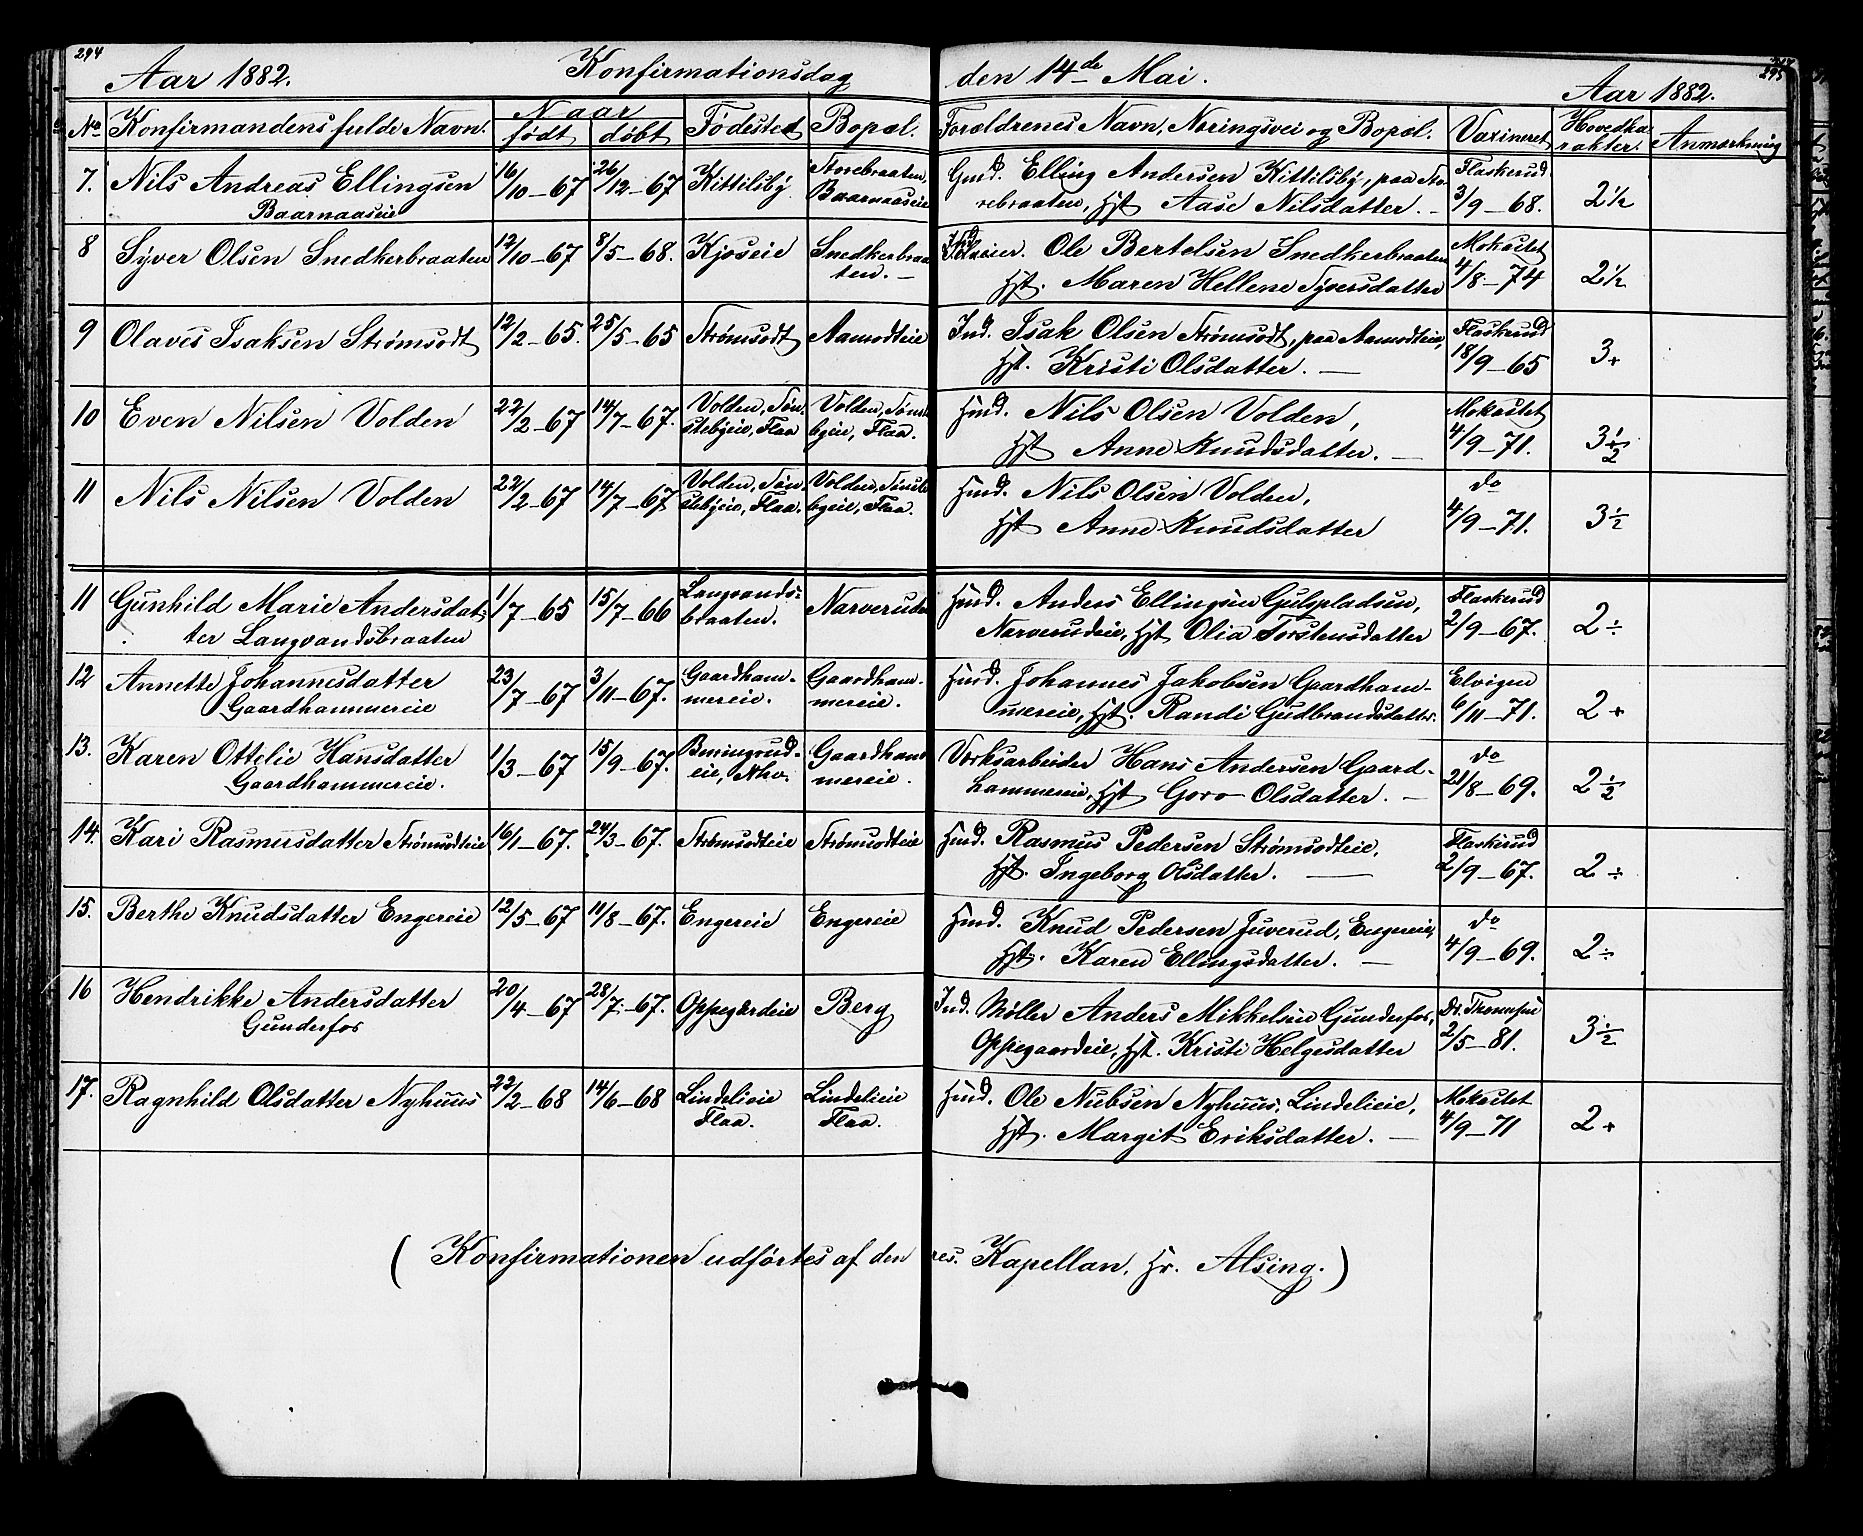 294
295
Aar 1882. Konfirmationsdag den 14de Mai. Aar 1882.
No Konfirmandens fulde Navn. Naar født døbt Fødested Bopæl. Forældrenes Navn, Næringsvei og Bopæl. Vaxineret Hovedkarakter. Anmærkning
7. Nils Andreas Ellingsen 16/10-67 26/12-67 Kittilsby Storebraaten, Gmd. Elling Andersen Kittilsby, paa Sto- Flaskerud
Baarnaaseie Baarnaaseie rebraaten, Hst Aase Nilsdatter. 3/9-68. 2½
8 Syver Olsen Snedkerbraaten 12/10-67 8/5-68. Kjøseie Snedkerbraa- Ole Bertelsen Snedkerbraaten Mokastet
ten. Hst. Maren Hellene Syversdatter 4/8-74 2½
9 Olaves Isaksen Strømsodt 12/2-65. 25/5-65 Strømsodt Aamodteie Ind. Isak Olsen Strømsodt, paa Aamodteie, Flaskerud
Hst. Kristi Olsdatter. 18/9-65 3+
10 Even Nilsen Volden 22/2-67 14/7-67. Volden, Tøn- Volden, Tønste- Hmd. Nils Olsen Volden, Mokastet
stebyeie, Flaa byeie, Flaa. Hst Anne Knudsdatter. 4/9-71. 3½
11 Nils Nilsen Volden 22/2-67 14/7-67 Volden, Tøn- Volden, Tønste- Hmd. Nils Olsen Volden, do
stebyeie, Flaa. byeie, Flaa. Hst Anne Knudsdatter 4/9-71. 3½
11 Gunhild Marie Andersdat- 1/7-65 15/7-66 Langvands- Narverudeie Hmd. Anders Ellingsen Gulspladsen, Flaskerud
ter Langvandsbraaten braaten. Narverudeie, Hst Olia Torstensdatter 2/9-67. 2÷
12 Annette Johannesdatter 23/7-67 3/11-67. Gaardham- Gaardham- Hmd. Johannes Jakobsen Gaardham- Elvigen
Gaardhammereie mereie. mereie. mereie, Hst. Randi Gudbrandsdatter. 6/11-71. 2+
13. Karen Ottelie Hansdatter 1/3-67 15/9-67. Gaardham- Værksarbeider Hans Andersen Gaard- do
Gaardhammereie. eie, mereie. hammereie, Hst Goro Olsdatter. 21/8-69. 2½
14. Kari Rasmusdatter Strømsodteie 16/1-67. 24/3-67. Strømsodteie Strømsodteie Hmd. Rasmus Pedersen Strømsodteie, Flaskerud
Hst. Ingeborg Olsdatter. 2/9-67. 2÷
15. Berthe Knudsdatter Engereie 12/5-67 11/8-67. Engereie Engereie Hmd. Knud Pedersen Juverud, Engereie, do
Hst. Karen Ellingsdatter. 4/9-69. 2÷
16 Hendrikke Andersdatter 20/4-67 28/7-67. Oppegardeie Berg Ind. Møller Anders Mikkelsen Gunderfos, Dr. Thomesen
Gunderfos Oppegaardeie, Hst. Kristi Helgesdatter 2/5-81. 3½
17. Ragnhild Olsdatter Nyhuus 22/2-68 14/6-68 Lindelieie Lindelieie Hmd. Ole Nubsen Nyhuus, Lindelieie, Mokastet
Flaa. Flaa. Hst. Margit Eriksdatter. 4/9-71 2+
( Konfirmationen udførtes af den res. Kapellan, Hr. Alsing. )